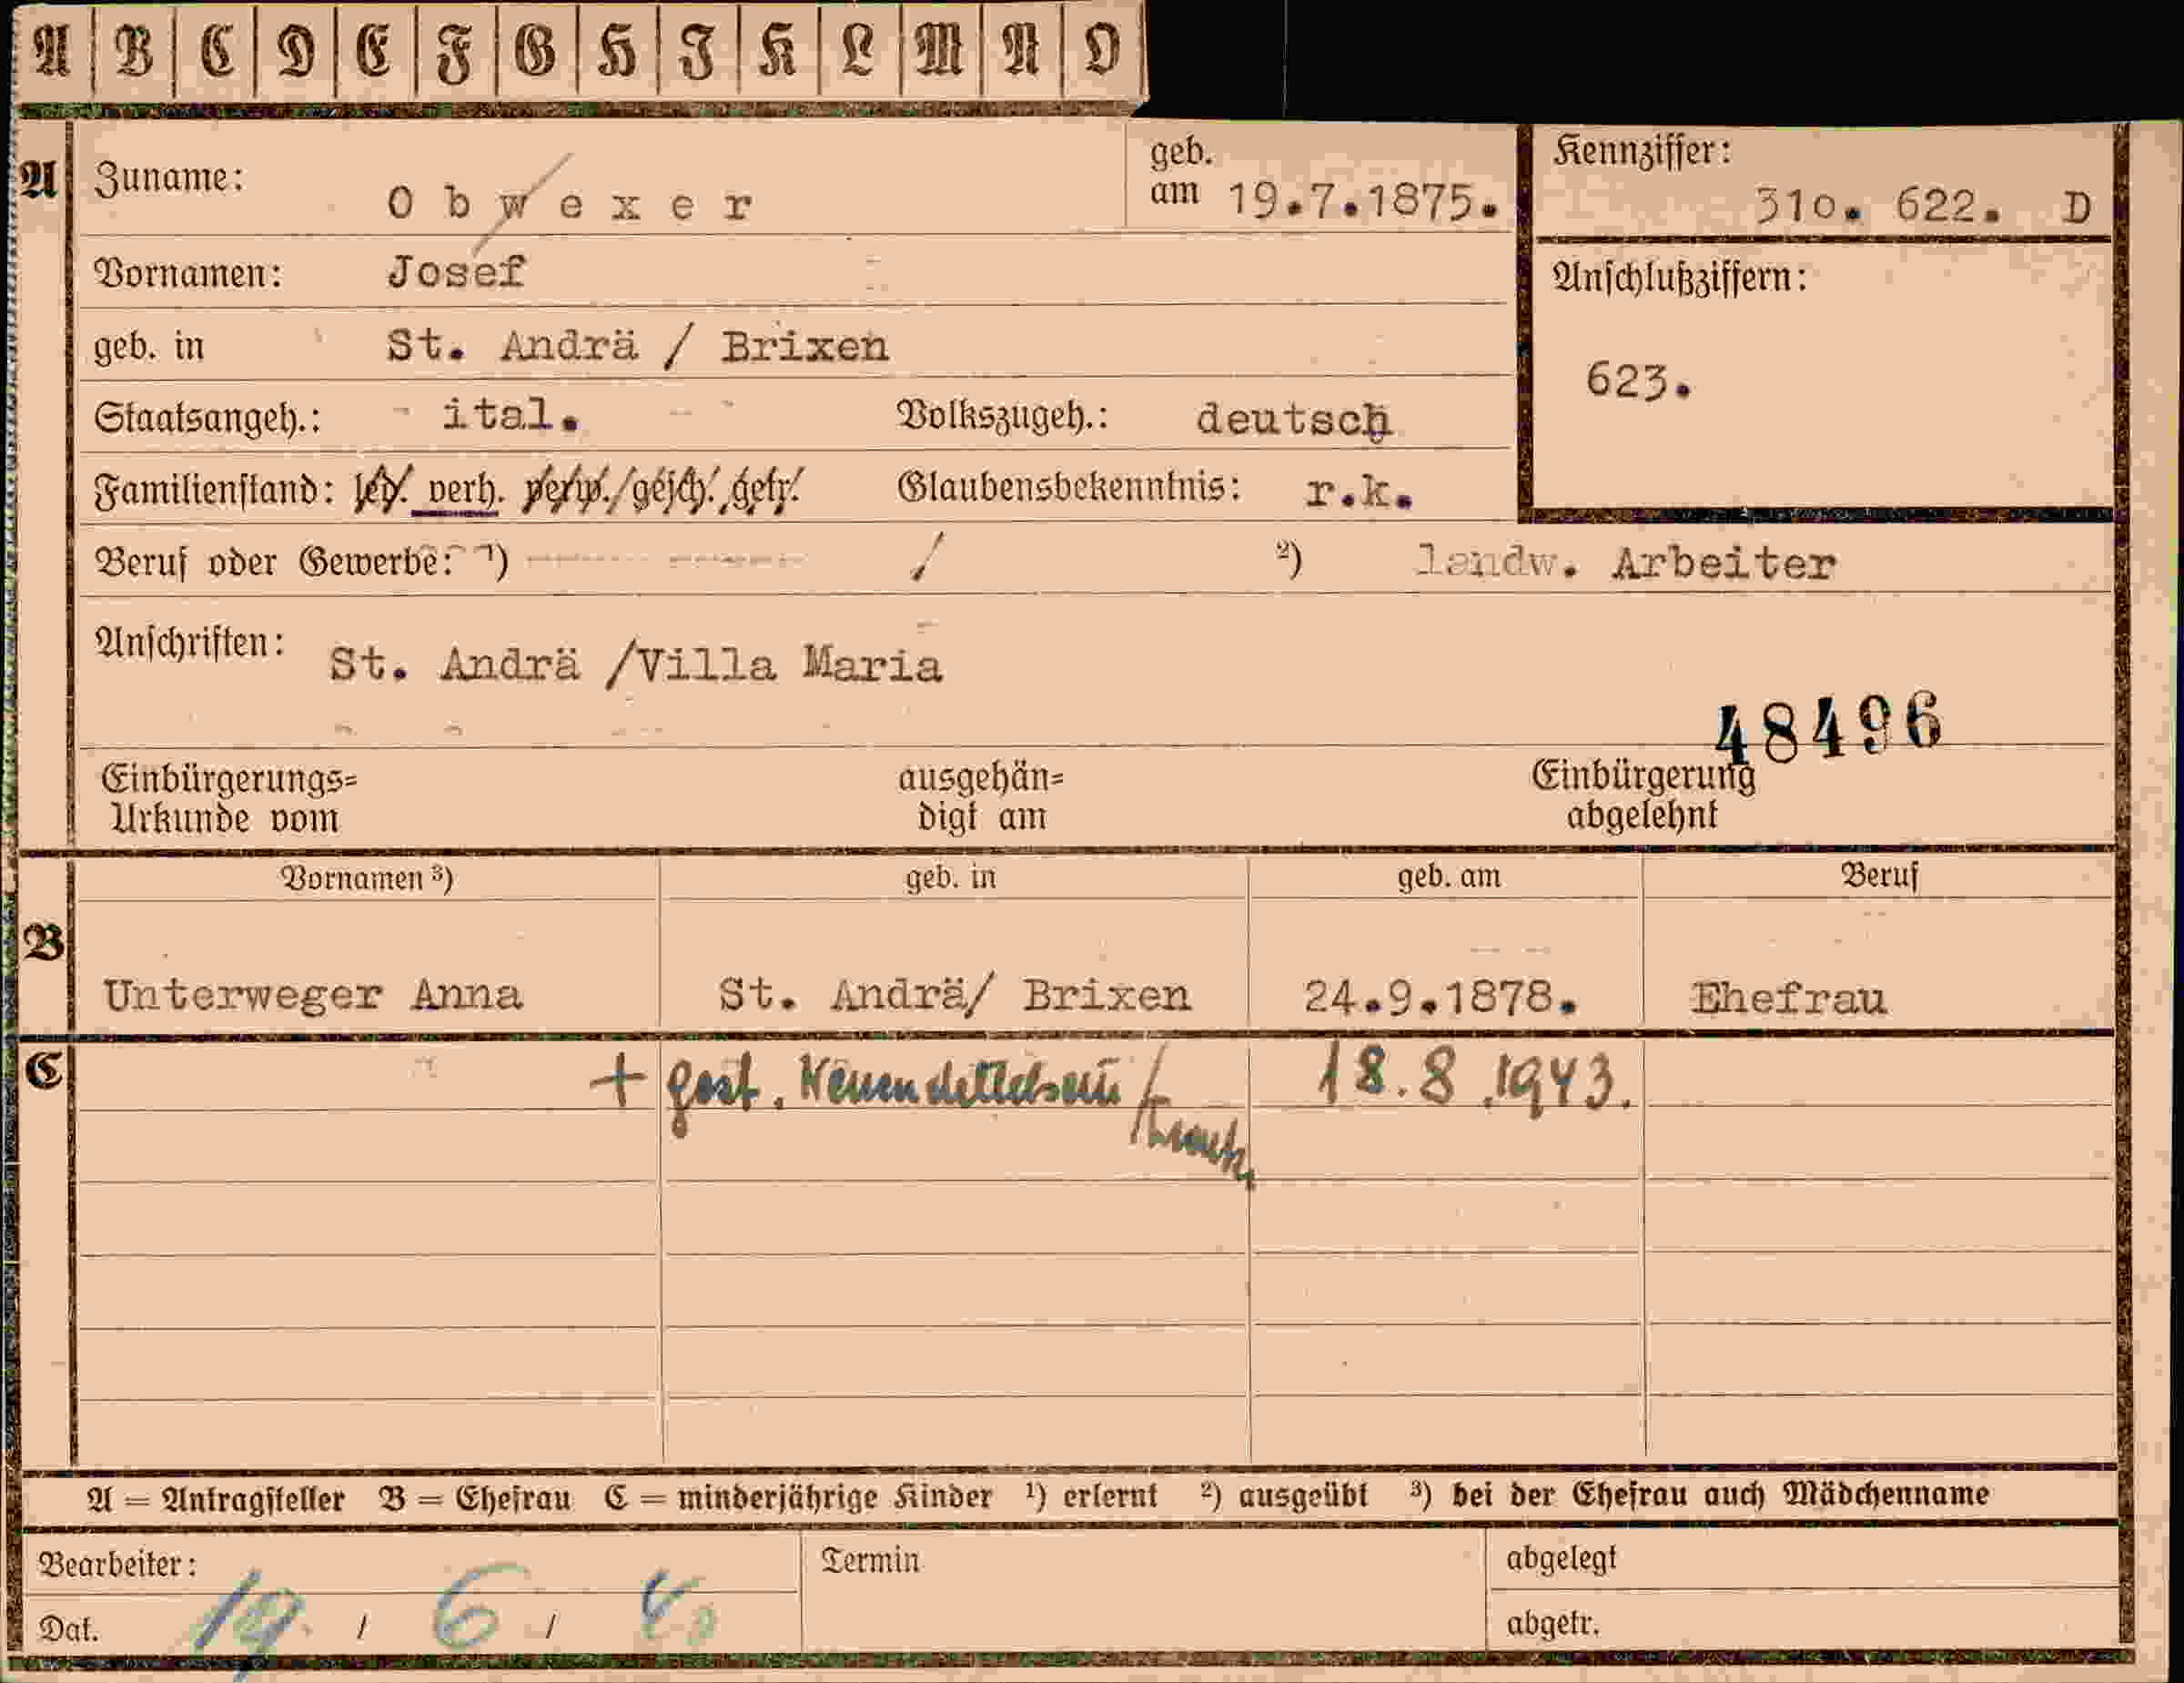 A B C D E F G H J K L M N O
A Zuname: Obwexer geb. am 19.7.1875. Kennziffer: 310. 622. D
Vornamen: Josef Anschlußziffern:
geb. in St. Andrä / Brixen 623.
Staatsangeh.: ital. Volkszugeh.: deutsch
Familienstand: led. verh. verw./gesch. getr. Glaubensbekenntnis: r.k.
Beruf oder Gewerbe: ¹) / ²) landw. Arbeiter
Anschriften: St. Andrä /Villa Maria
48496
Einbürgerungs= ausgehän= Einbürgerung
Urkunde vom digt am abgelehnt
Vornamen ³) geb. in geb. am Beruf
B
Unterweger Anna St. Andrä/ Brixen 24.9.1878. Ehefrau
C + gest. Neuendettelsau / 18.8.1943.
A = Antragsteller B = Ehefrau C = minderjährige Kinder ¹) erlernt ²) ausgeübt ³) bei der Ehefrau auch Mädchenname
Bearbeiter: Termin abgelegt
Dat. 19. / 6 / 40 abgetr.